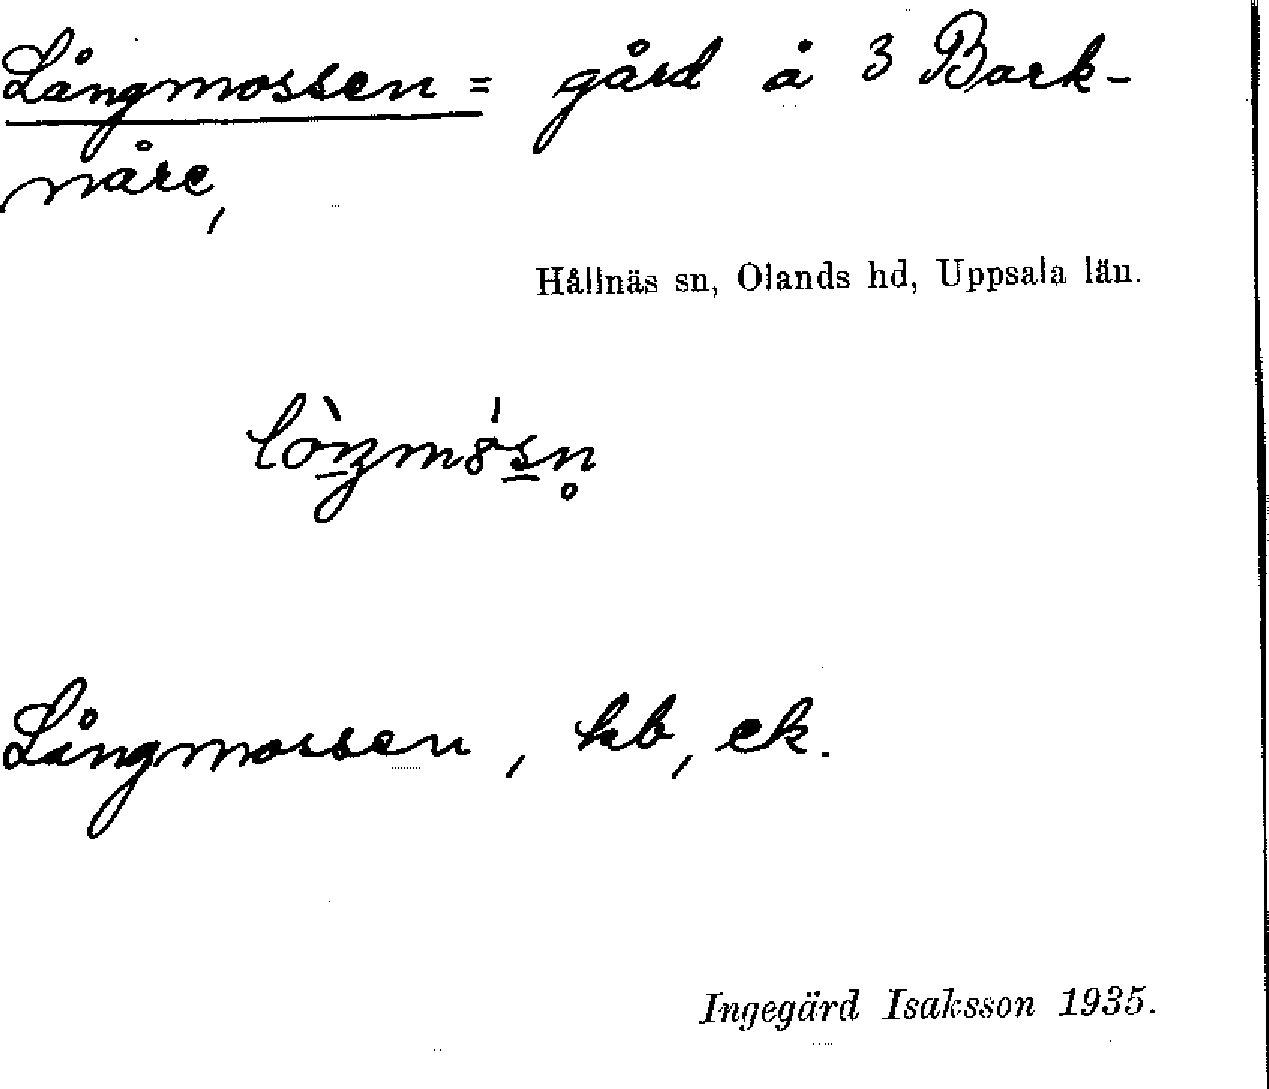 Långmossen = gård å 3 Bark-
nåre,
Hållnäs sn, Olands hd, Uppsala län.
Långmossen, kb, ek.
Ingegärd Isaksson 1935.